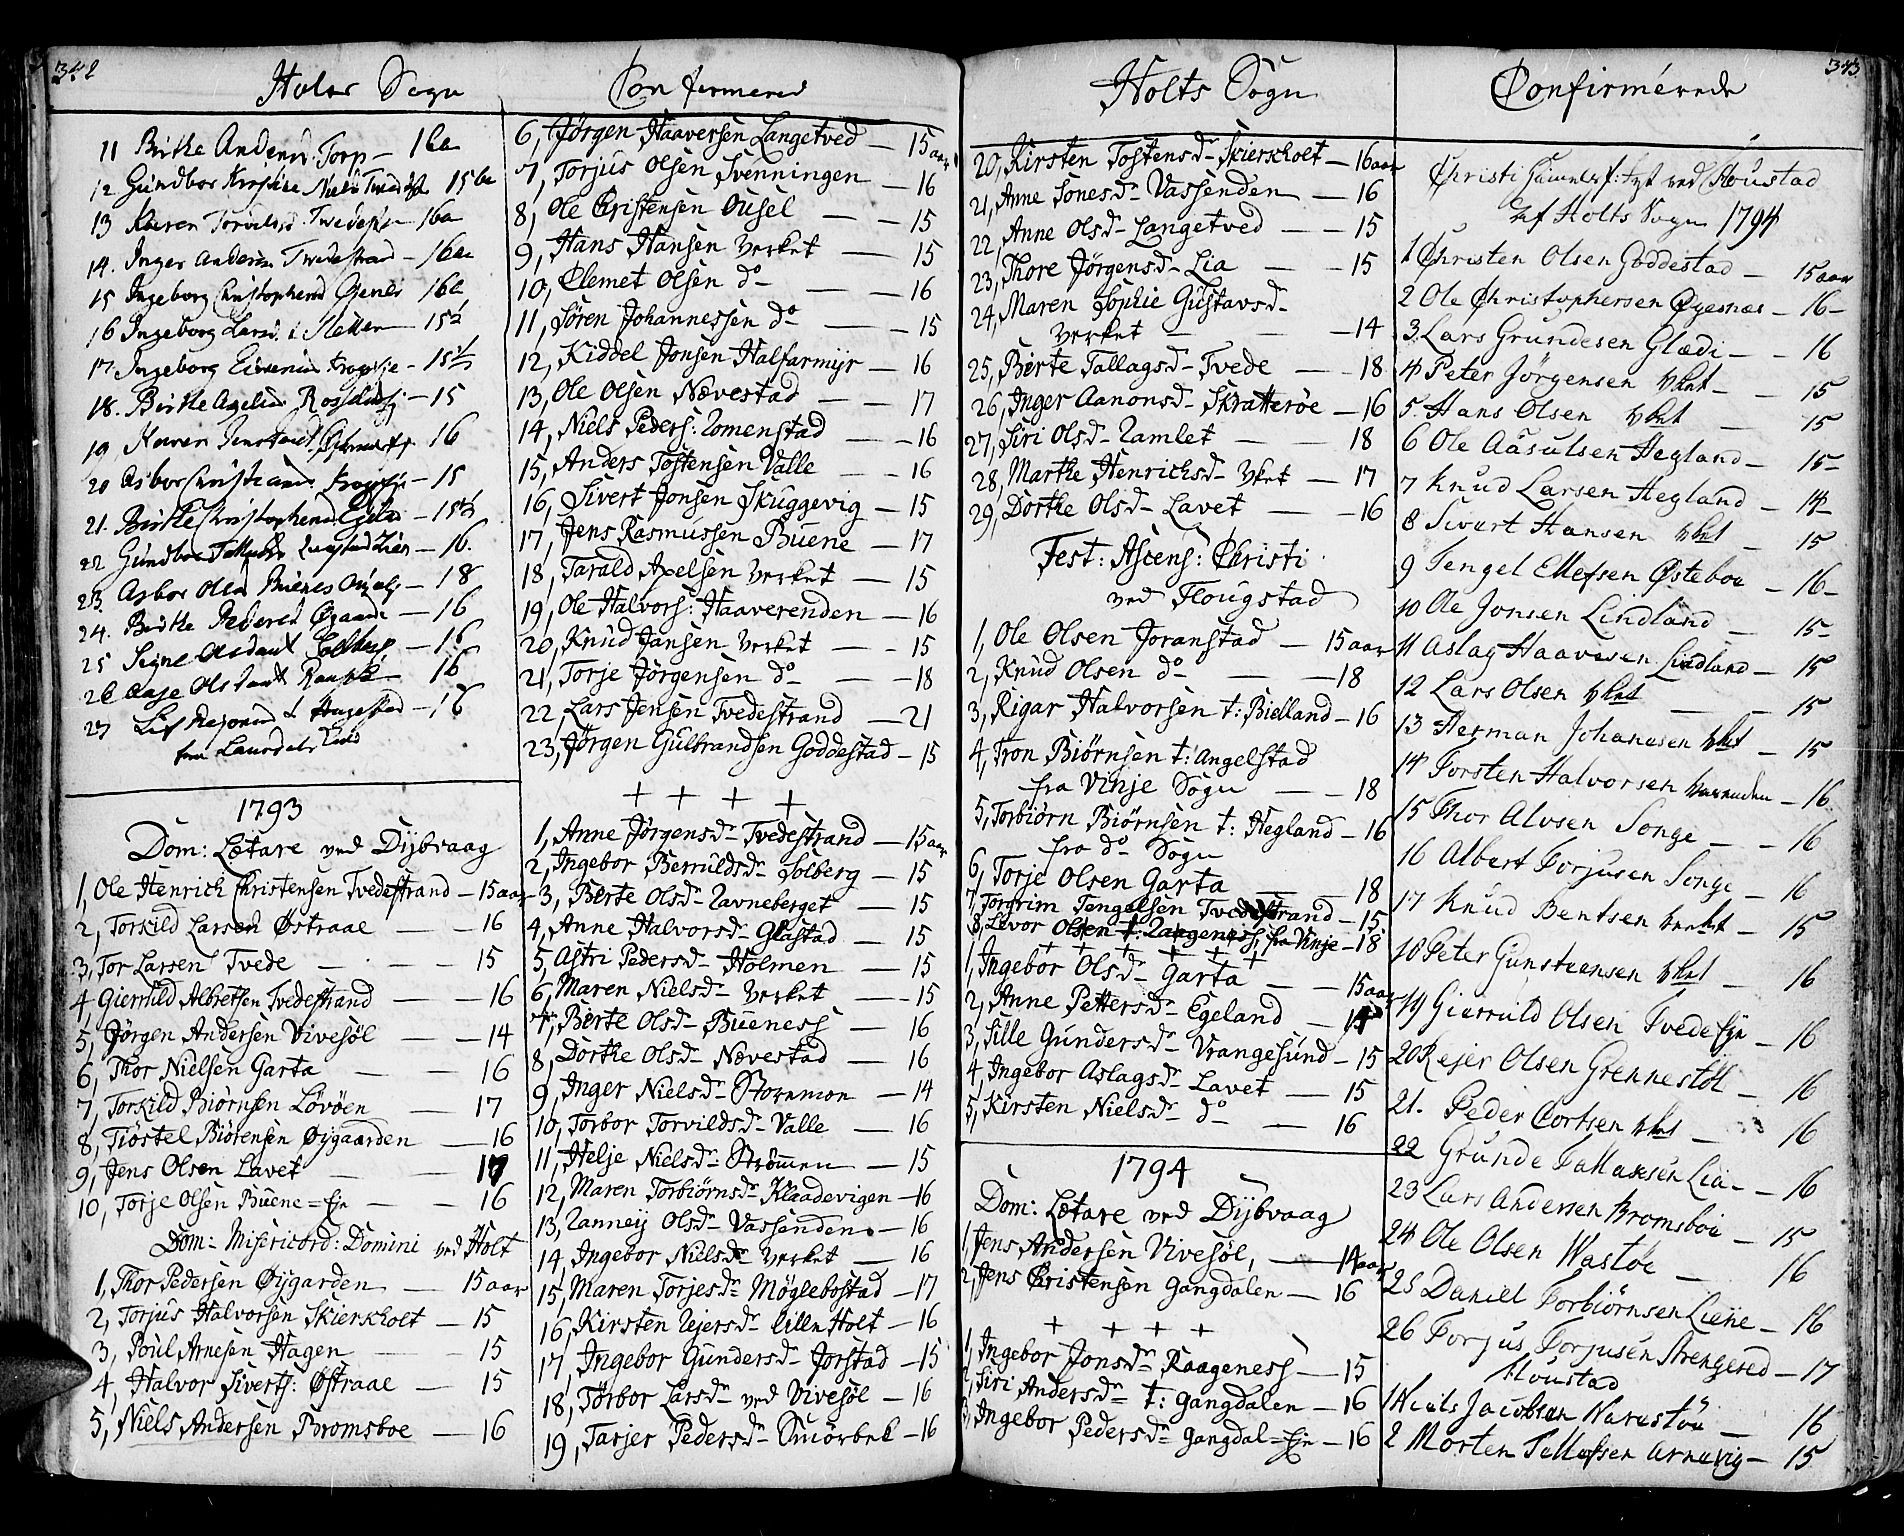 342
Holts Sogn
Confirmered
11 Birthe Anders: Torp — 16a
12 Gundbor Kirstine Niels
13 Karen Torvilsd: Twede — 16a
14. Inger Anders: Twedestrand — 16a
15 Ingeborg Christophersd — 16a
16 Ingeborg Larsd: — 15½
17. Ingeborg — 15½
18. Birthe — 15
19 Maren — 16
20 Asbor Christians — 15
21. Birthe Christophersd — 15½
22 Gundbor — 16.
23. Asbor Olsd — 18
24. Birthe Peders — 16
25 Signe Olsdaat Solberg — 16
26 Aase Olsdaat — 16
27 — 16
1793
Dom: Lætare ved Dybvaag
1, Ole Henrich Christensen Tvedestrand — 15 aar
2, Torkild Larsen Østraae — 16
3, Tor Larsen Tvede — 15
4, Gierruld Albretsen Tvedestrand — 16
5, Jørgen Andersen Vivesøl — 14
6, Thor Nielsen Garta — 16
7, Torkild Biørnsen Løvøen — 17
8, Tiøstel Biørensen Øygaarden — 16
9, Jens Olsen Lavet — 17
10, Torje Olsen Buene = Eje — 16
Dom: Misericord: Domini ved Holt
1, Thor Pedersen Øygarden — 15 aar
2, Torjus Halvorsen Skierkholt — 15
3, Poul Arnesen Hagen — 15
4, Halvor Siverts: Østraae — 15
5, Niels Andersen Bromsboe — 16
6, Jørgen Haaversen Langetved — 15 aar
7, Torjus Olsen Svenningen — 16
8, Ole Christensen Ousel — 15
9, Hans Hansen Verket — 15
10, Clemet Olsen do — 16
11, Søren Johannessen do — 15
12, Kiddel Jonsen Halfarmyr — 16
13, Ole Olsen Nævestad — 17
14, Niels Peders: Lomenstad — 16
15, Anders Tostensen Valle — 16
16, Sivert Jonsen Skuggevig — 15
17, Jens Rasmussen Buene — 17
18, Tarald Axelsen Verket — 15
19, Ole Halvors: Haaverenden — 16
20, Knud Jansen Verket — 15
21, Torje Jørgensen do — 18
22, Lars Jensen Tvedestrand — 21
23, Jørgen Gulbrandsen Goddestad — 15
+ + + +
1, Anne Jørgensdr Tvedestrand — 15 aar
2, Ingebor Berruldsdr Solberg — 15
3, Berte Olsdr Ravneberget — 15
4, Anne Halvorsdr Glastad — 15
5, Astri Pedersdr Holmen — 15
6, Maren Nielsdr Verket — 15
7, Berte Olsdr Bueness — 16
8, Dorthe Olsdr Nævestad — 16
9, Inger Nielsdr Stornmon — 14
10, Torbor Torvildsdr Valle — 16
11, Helje Nielsdr Strømmen — 15
12, Maren Torbiørnsdr Klaadevigen — 16
13, Ranney Olsdr Vassenden — 16
14, Ingebor Nielsdr Verket — 16
15, Maren Torjesdr Møglebostad — 17
16, Kirsten Rejersdr Lille Holt — 16
17, Ingebor Gundersdr Jorstad — 15
18, Torbor Larsdr ved Vivesøl — 16
19, Tarjer Pedersdr Smørbek — 16
Holts Sogn
Confirmérede
343
20, Kirsten Tostensdr Skierkholt — 16 aar
21, Anne Jonesdr Vassenden — 16
22, Anne Olsdr Langetved — 15
23, Thore Jørgensdr Lia — 15
24, Maren Sophie Gustavsdr
Verket — 14
25, Berte Tallagsdr Tvede — 18
26, Inger Aanonsdr Skratterøe — 16
27, Siri Olsdr Ramlet — 18
28, Marthe Henrichsdr Vket — 17
29, Dorthe Olsdr Lavet — 16
Fest: Ascens: Christi
ved Flougstad
1, Ole Olsen Joranstad — 15 aar
2, Knud Olsen do — 18
3, Rigar Halvorsen t: Bielland — 16
4, Tron Biørnsen t: Angelstad
fra Vinje Sogn — 18
5, Torbiørn Biørnsen t: Hegland — 16
fra do Sogn
6, Torje Olsen Garta — 18
7, Torgrim Tengelsen Tvedestrand — 15
8, Levor Olsen t: Langeness fra Vinje — 18
+ + + + +
1, Ingebor Olsdr Garta — 15 aar
2, Anne Pettersdr Egeland — 15
3, Sille Gundersdr Vrangesund — 15
4, Ingebor Aslagsdr Lavet — 15
5, Kirsten Nielsdr do — 16
1794
Dom: Lætare ved Dybvaag
1, Jens Andersen Vivesøl, — 14 aar
2, Jens Christensen Gangdalen — 16
+ + + +
1, Ingebor Jonsdr Raageness — 15
2, Siri Andersdr t: Gangdalen — 16
3, Ingebor Pedersdr Gangdal = Eje — 16
Christi Himmelf: ved Floustad
af Holts Sogn 1794
1 Christen Olsen Goddestad — 15 aar
2 Ole Christophersen Øyesnæs — 16
3. Lars Grundesen Glædi — 16
4 Peter Jörgensen Vket — 15
5. Hans Olsen Vket — 15
6 Ole Aasulsen Hegland — 15
7 Knud Larsen Hegland — 14
8 Sivert Hansen Vket — 15
9 Tengel Ellefsen Østeboe — 16
10 Ole Jonsen Lindland — 15
11 Aslag Haavesen Lindland — 15
12 Lars Olsen Vket — 15
13 Herman Johanesen Vket — 15
14 Torsten Halvorsen — 16
15 Thor Alvsen Songe — 16
16 Albert Torjusen Songe — 16
17 Knud Bentsen Verket — 15
18 Peter Gunstensen Vket — 16
19 Gierruld Olsen Tvede Eje — 16
20 Rejer Olsen Grennestöl — 16
21. Peder Cortsen Vket — 16
22 Grunde Tallaksen Lia — 16
23 Lars Andersen Bromsboe — 15
24 Ole Olsen Wastöe — 16
25 Daniel Torbiørnsen Liene — 16
26 Torjus Torjusen Strengered — 17
Floustad
1 Niels Jacobsen — 16
2 Morten Tallefsen Arnevig — 15